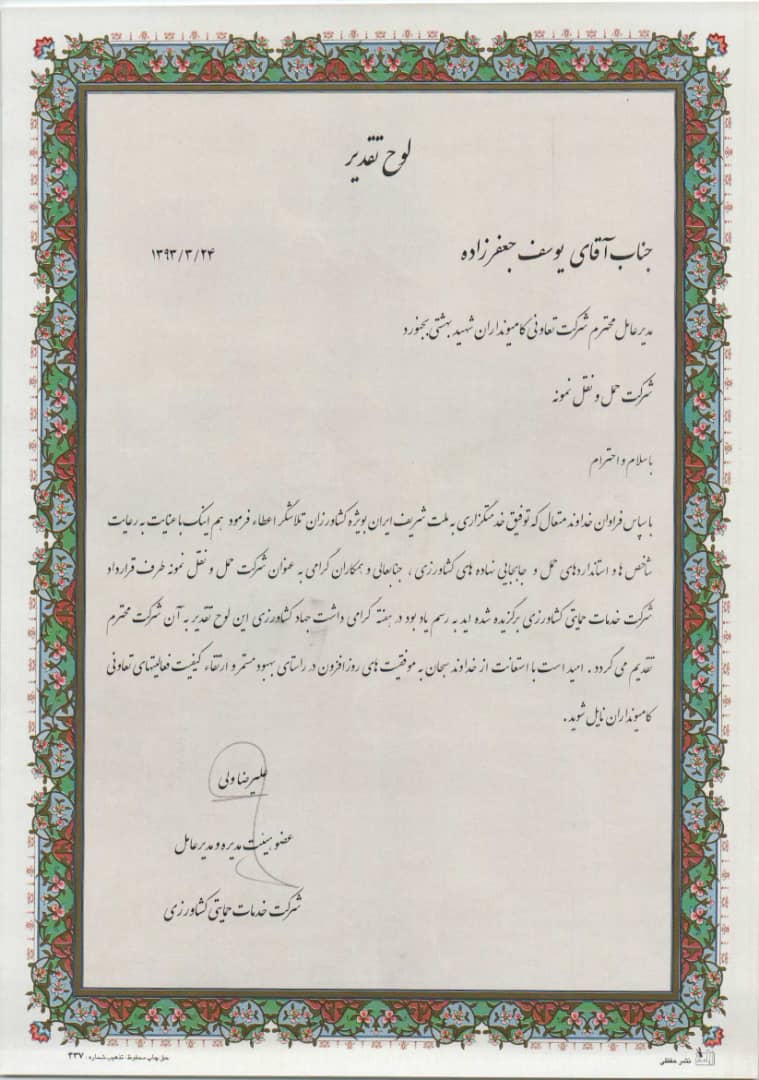 لوح تقدیر
جناب آقای یوسف جعفرزاده ۱۳۹۳/۳/۲۴
مدیرعامل محترم شرکت تعاونی کامیونداران شهید بهشتی بجنورد
شرکت حمل و نقل نمونه
با سلام و احترام
با سپاس فراوان خداوند متعال که توفیق خدمتگزاری به ملت شریف ایران بویژه کشاورزان تلاشگر اعطاء فرمود هم اینک با عنایت به رعایت
شاخص ها و استانداردهای حمل و جابجایی نهاده های کشاورزی ، جنابعالی و همکاران گرامی به عنوان شرکت حمل و نقل نمونه طرف قرارداد
شرکت خدمات حمایتی کشاورزی برگزیده شده اید به رسم یاد بود در هفته گرامی داشت جهاد کشاورزی این لوح تقدیر به آن شرکت محترم
تقدیم می گردد . امید است با استعانت از خداوند سبحان به موفقیت های روزافزون در راستای بهبود مستمر و ارتقاء کیفیت فعالیتهای تعاونی
کامیونداران نایل شوید .
علیرضا ولی
عضو هیئت مدیره و مدیرعامل
شرکت خدمات حمایتی کشاورزی
نشر حافظی حق چاپ محفوظ: تذهیب شماره: ۴۳۷